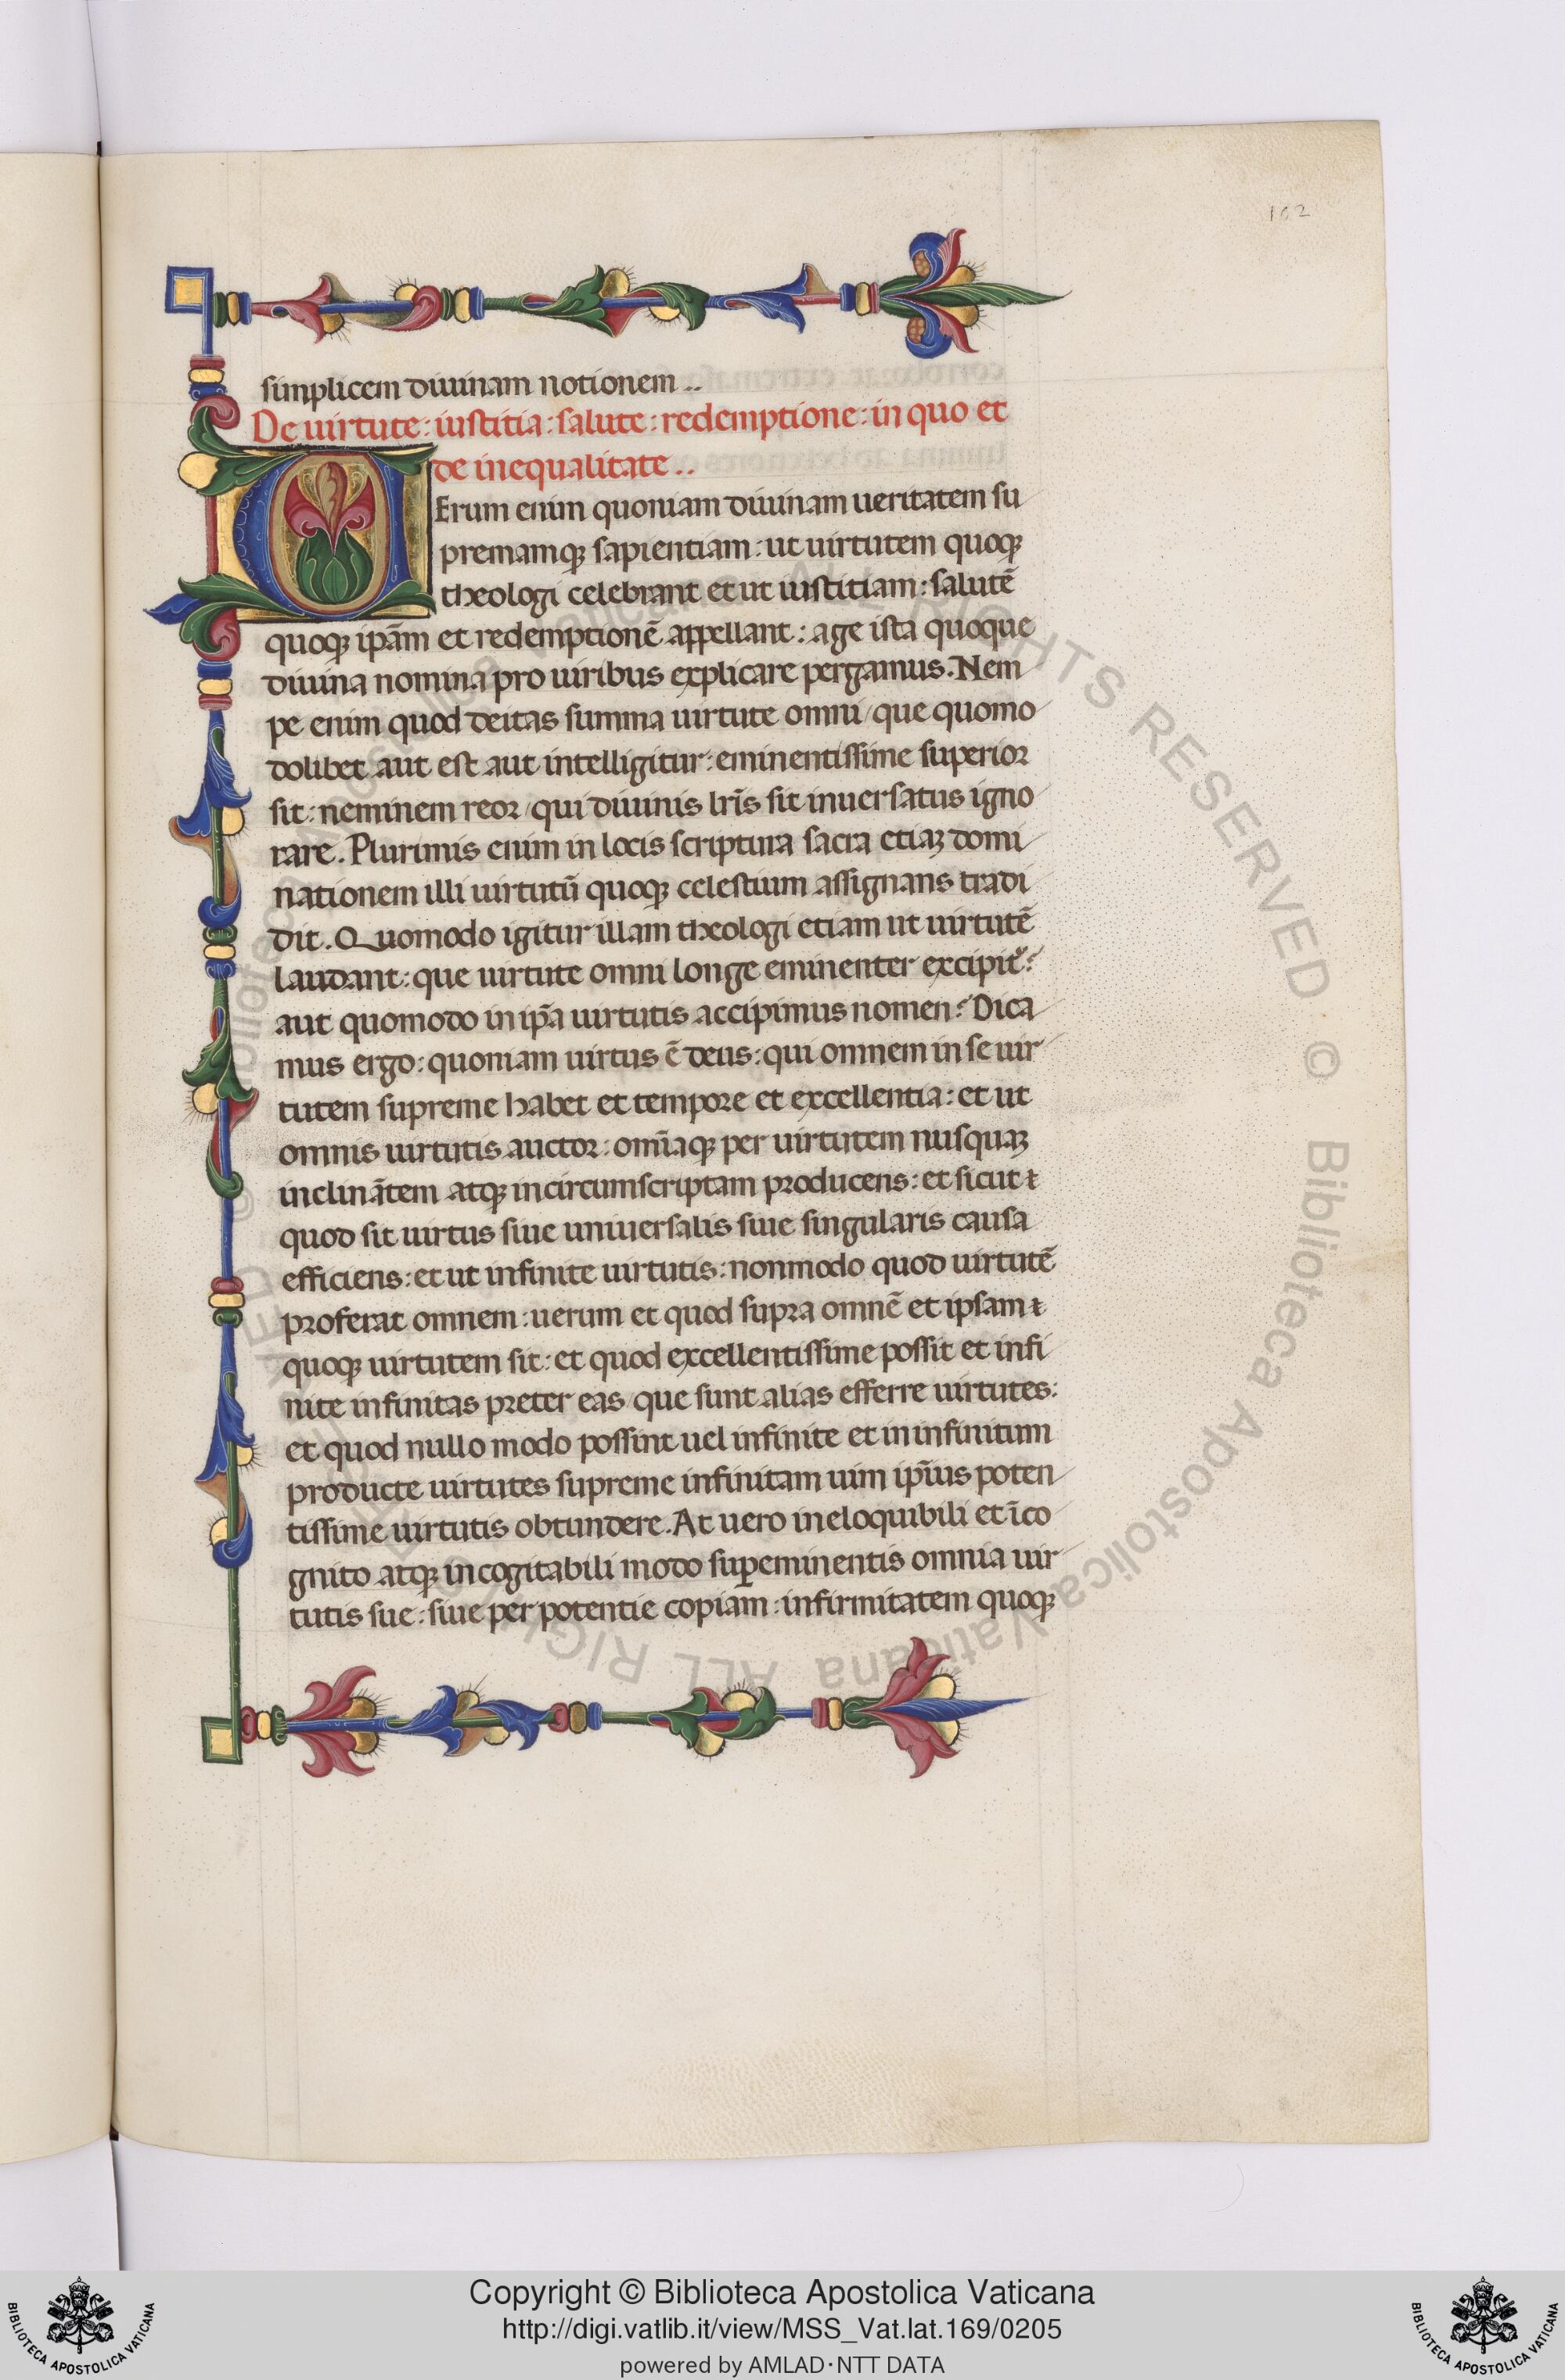 102
simplicem diuinam notionem..
De uirtute: iustitia: salute: redemptione: in quo et
de inequalitate..
VErum enim quoniam diuinam ueritatem su
premamqꝫ sapientiam: ut uirtutem quoqꝫ
theologi celebrant et ut iustitiam: salutē
quoqꝫ ipām et redemptionē appellant: age ista quoque
diuina nomina pro uiribus explicare pergamus. Nem
pe enim quod deitas summa uirtute omni/que quomo
dolibet aut est aut intelligitur: eminentissime superior
sit: neminem reor/qui diuinis lrīs sit inuersatus igno
rare. Plurimis enim in locis scriptura sacra etiaꝫ domi
nationem illi uirtutū quoqꝫ celestium assignans tradi
dit. Quomodo igitur illam theologi etiam ut uirtutē
laudant: que uirtute omni longe eminenter excipit᷑?
aut quomodo in ip̄a uirtutis accipimus nomen? Dica
mus ergo: quoniam uirtus ē deus: qui omnem in se uir
tutem supreme habet et tempore et excellentia: et ut
omnis uirtutis auctor: omīaqꝫ per uirtutem nusquaꝫ
inclinātem atqꝫ incircumscriptam producens: et sicut ⁊
quod sit uirtus siue uniuersalis siue singularis causa
efficiens: et ut infinite uirtutis: nonmodo quod uirtutē
proferat omnem: uerum et quod supra omnē et ipsam ⁊
quoqꝫ uirtutem sit: et quod excellentissime possit et infi
nite infinitas preter eas/que sunt alias efferre uirtutes:
et quod nullo modo possint uel infinite et in infinitum
producte uirtutes supreme infinitam uim ip̄ius poten
tissime uirtutis obtundere. At uero ineloquibili et īco
gnito atqꝫ incogitabili modo suꝑeminentis omnia uir
tutis sue: siue per potentie copiam: infirmitatem quoqꝫ
© Biblioteca Apostolica Vaticana ALL RIGHTS RESERVED
BIBLIOTECA APOSTOLICA VATICANA
Copyright © Biblioteca Apostolica Vaticana
http://digi.vatlib.it/view/MSS_Vat.lat.169/0205
powered by AMLAD·NTT DATA
BIBLIOTECA APOSTOLICA VATICANA